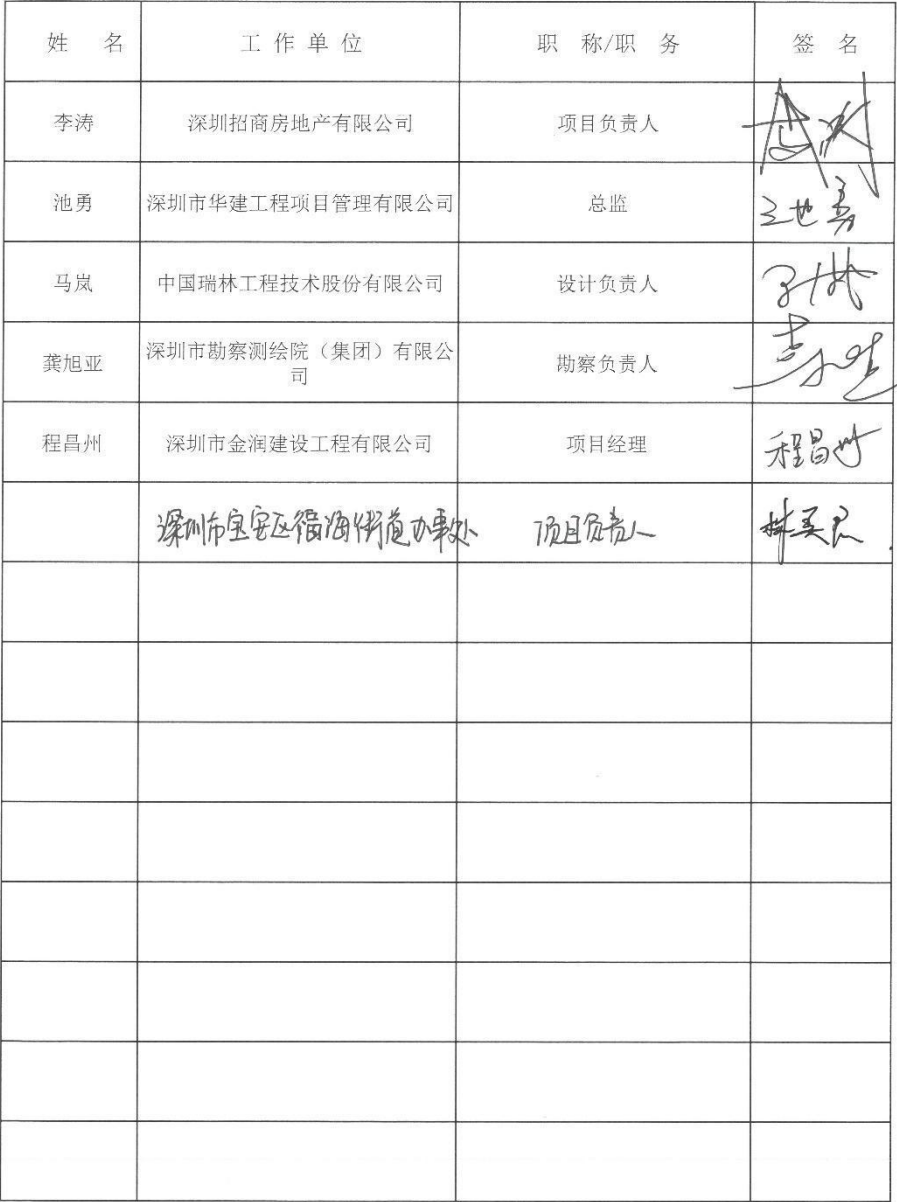 姓 名 工 作 单 位 职 称/职 务 签 名
李涛 深圳招商房地产有限公司 项目负责人
池勇 深圳市华建工程项目管理有限公司 总监 池勇
马岚 中国瑞林工程技术股份有限公司 设计负责人
龚旭亚 深圳市勘察测绘院（集团）有限公
司 勘察负责人
程昌州 深圳市金润建设工程有限公司 项目经理 程昌州
深圳市宝安区福海街道办事处 项目负责人